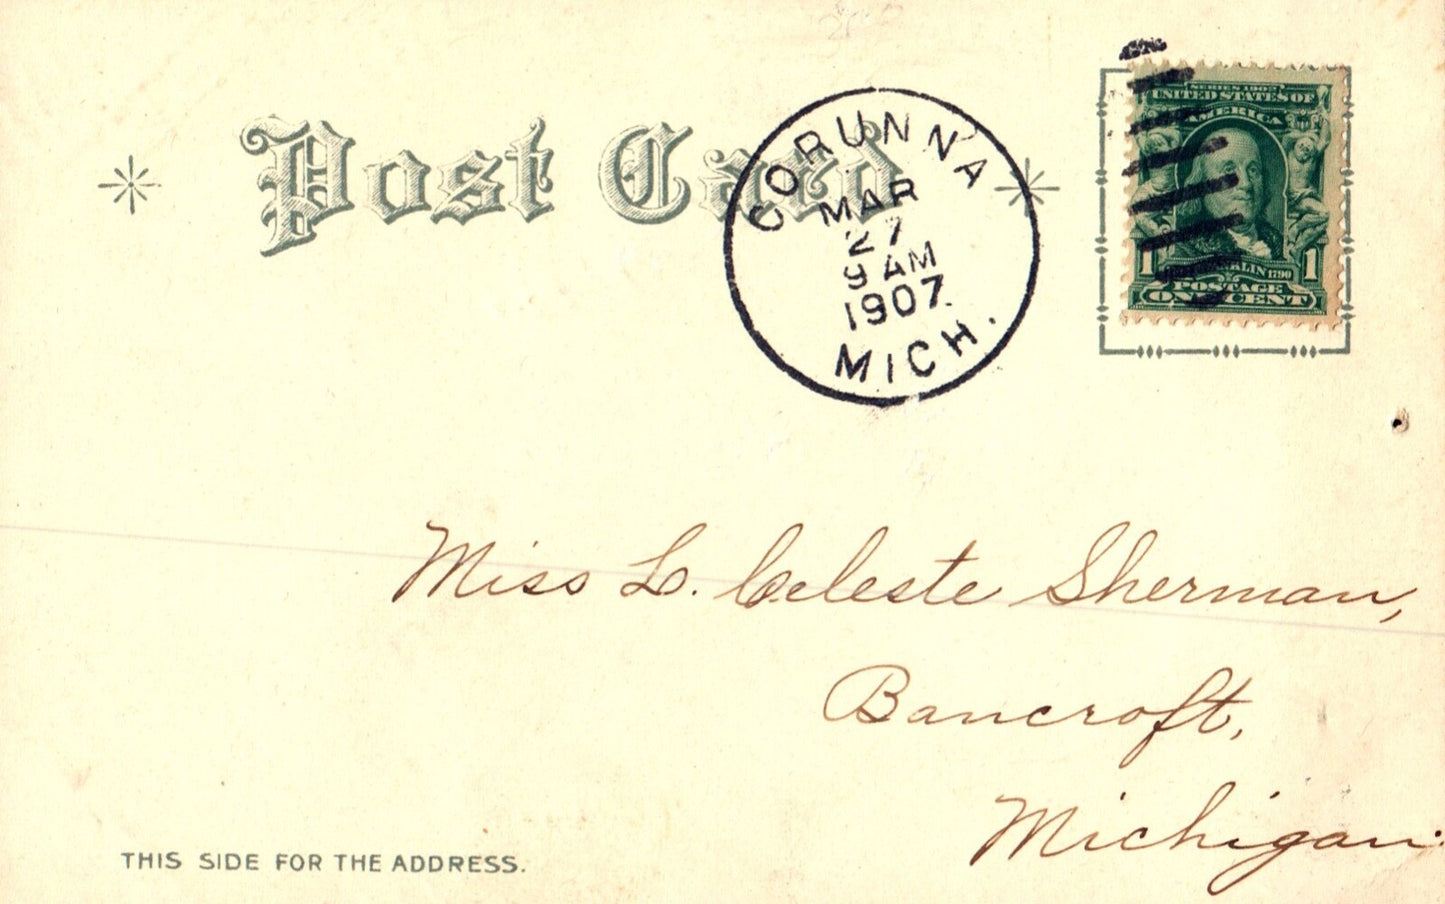 Post Card
CORUNNA
MAR
27
9 AM
1907.
MICH.
SERIES 1902
UNITED STATES OF
AMERICA
FRANKLIN 1790
1 1
POSTAGE
ONE CENT
Miss L. Celeste Sherman,
Bancroft,
Michigan.
THIS SIDE FOR THE ADDRESS.